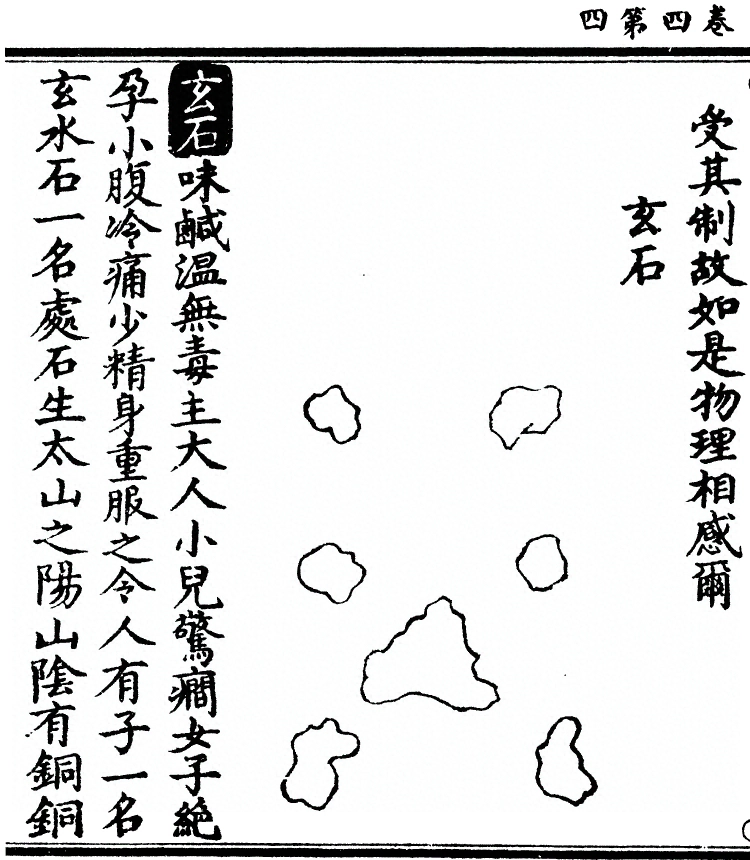 卷四第四
受其制故如是物理相感爾
玄石
玄石味鹹溫無毒主大人小兒驚癇女子絕
孕小腹冷痛少精身重服之令人有子一名
玄水石一名處石生太山之陽山陰有銅銅